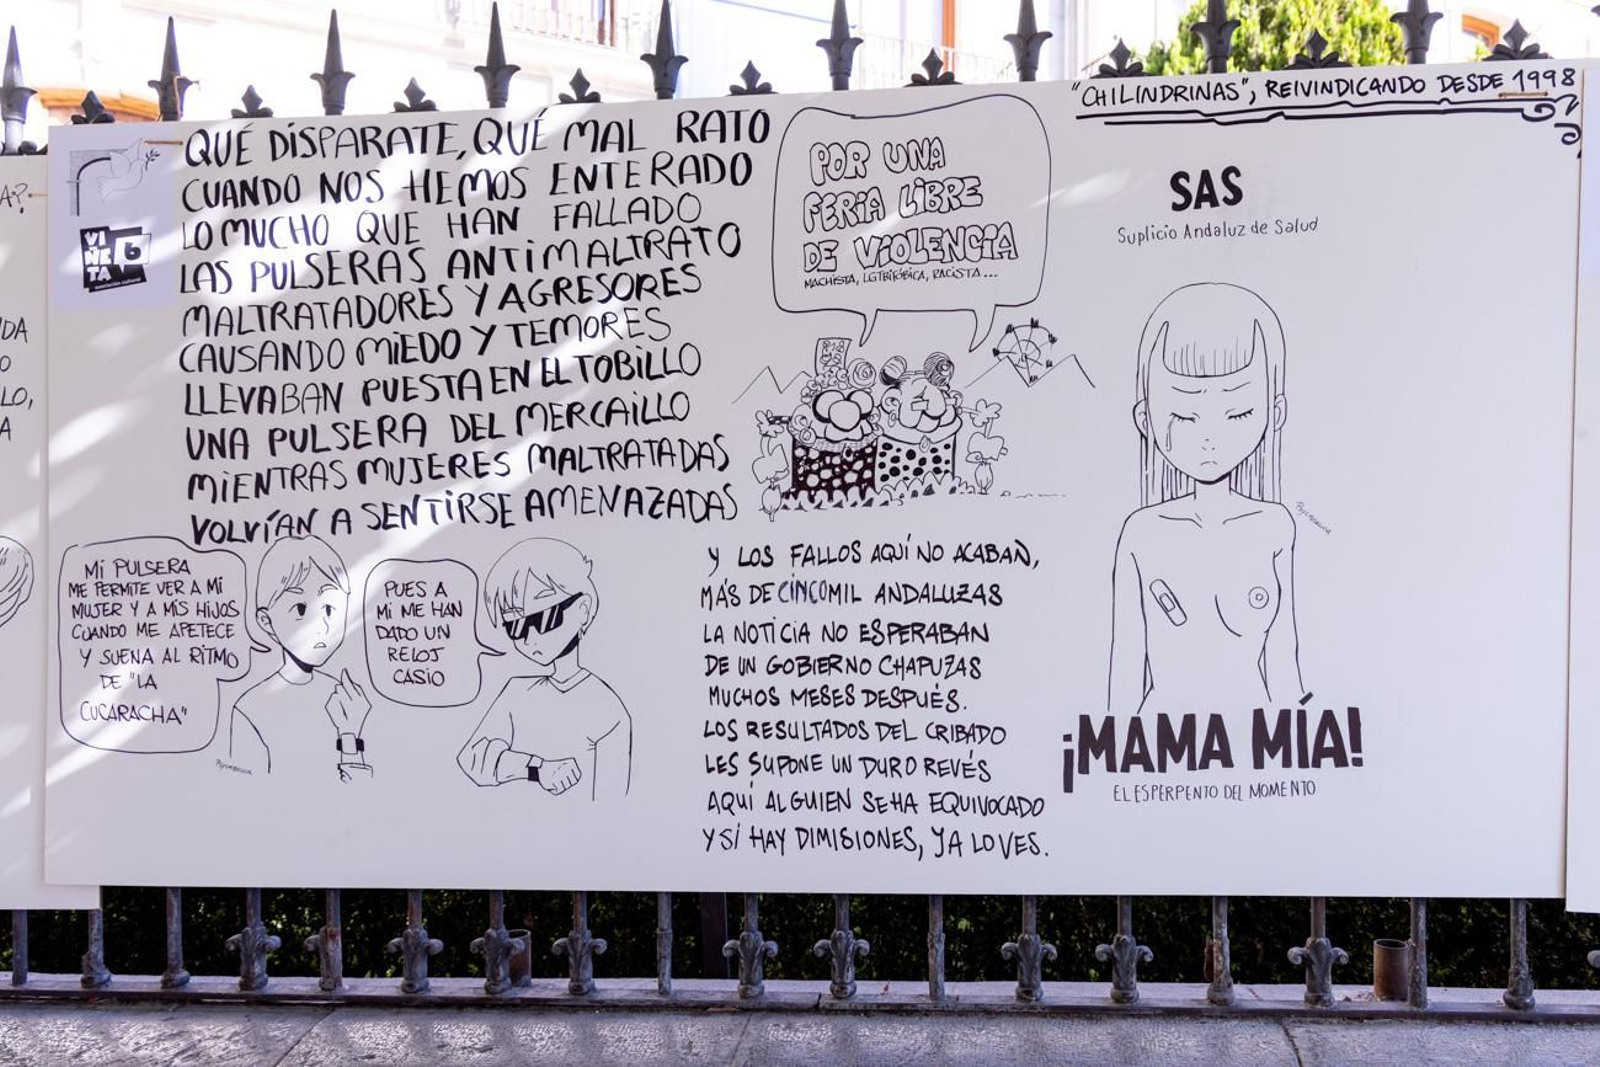 "CHILINDRINAS", REIVINDICANDO DESDE 1998
VI
ÑE
TA
6
QUÉ DISPARATE, QUÉ MAL RATO
CUANDO NOS HEMOS ENTERADO
LO MUCHO QUE HAN FALLADO
LAS PULSERAS ANTIMALTRATO
MALTRATADORES Y AGRESORES
CAUSANDO MIEDO Y TEMORES
LLEVABAN PUESTA EN EL TOBILLO
UNA PULSERA DEL MERCAILLO
MIENTRAS MUJERES MALTRATADAS
VOLVÍAN A SENTIRSE AMENAZADAS
MI PULSERA
ME PERMITE VER A MI
MUJER Y A MIS HIJOS
CUANDO ME APETECE
Y SUENA AL RITMO
DE "LA
CUCARACHA"
PUES A
MI ME HAN
DADO UN
RELOJ
CASIO
POR UNA
FERIA LIBRE
DE VIOLENCIA
MACHISTA, LGTBIFÓBICA, RACISTA...
Y LOS FALLOS AQUÍ NO ACABAN,
MÁS DE CINCOMIL ANDALUZAS
LA NOTICIA NO ESPERABAN
DE UN GOBIERNO CHAPUZAS
MUCHOS MESES DESPUÉS.
LOS RESULTADOS DEL CRIBADO
LES SUPONE UN DURO REVÉS
AQUÍ ALGUIEN SE HA EQUIVOCADO
Y SÍ HAY DIMISIONES, YA LO VES.
SAS
Suplicio Andaluz de Salud
¡MAMA MÍA!
EL ESPERPENTO DEL MOMENTO
A?
DA
O
LO,
A